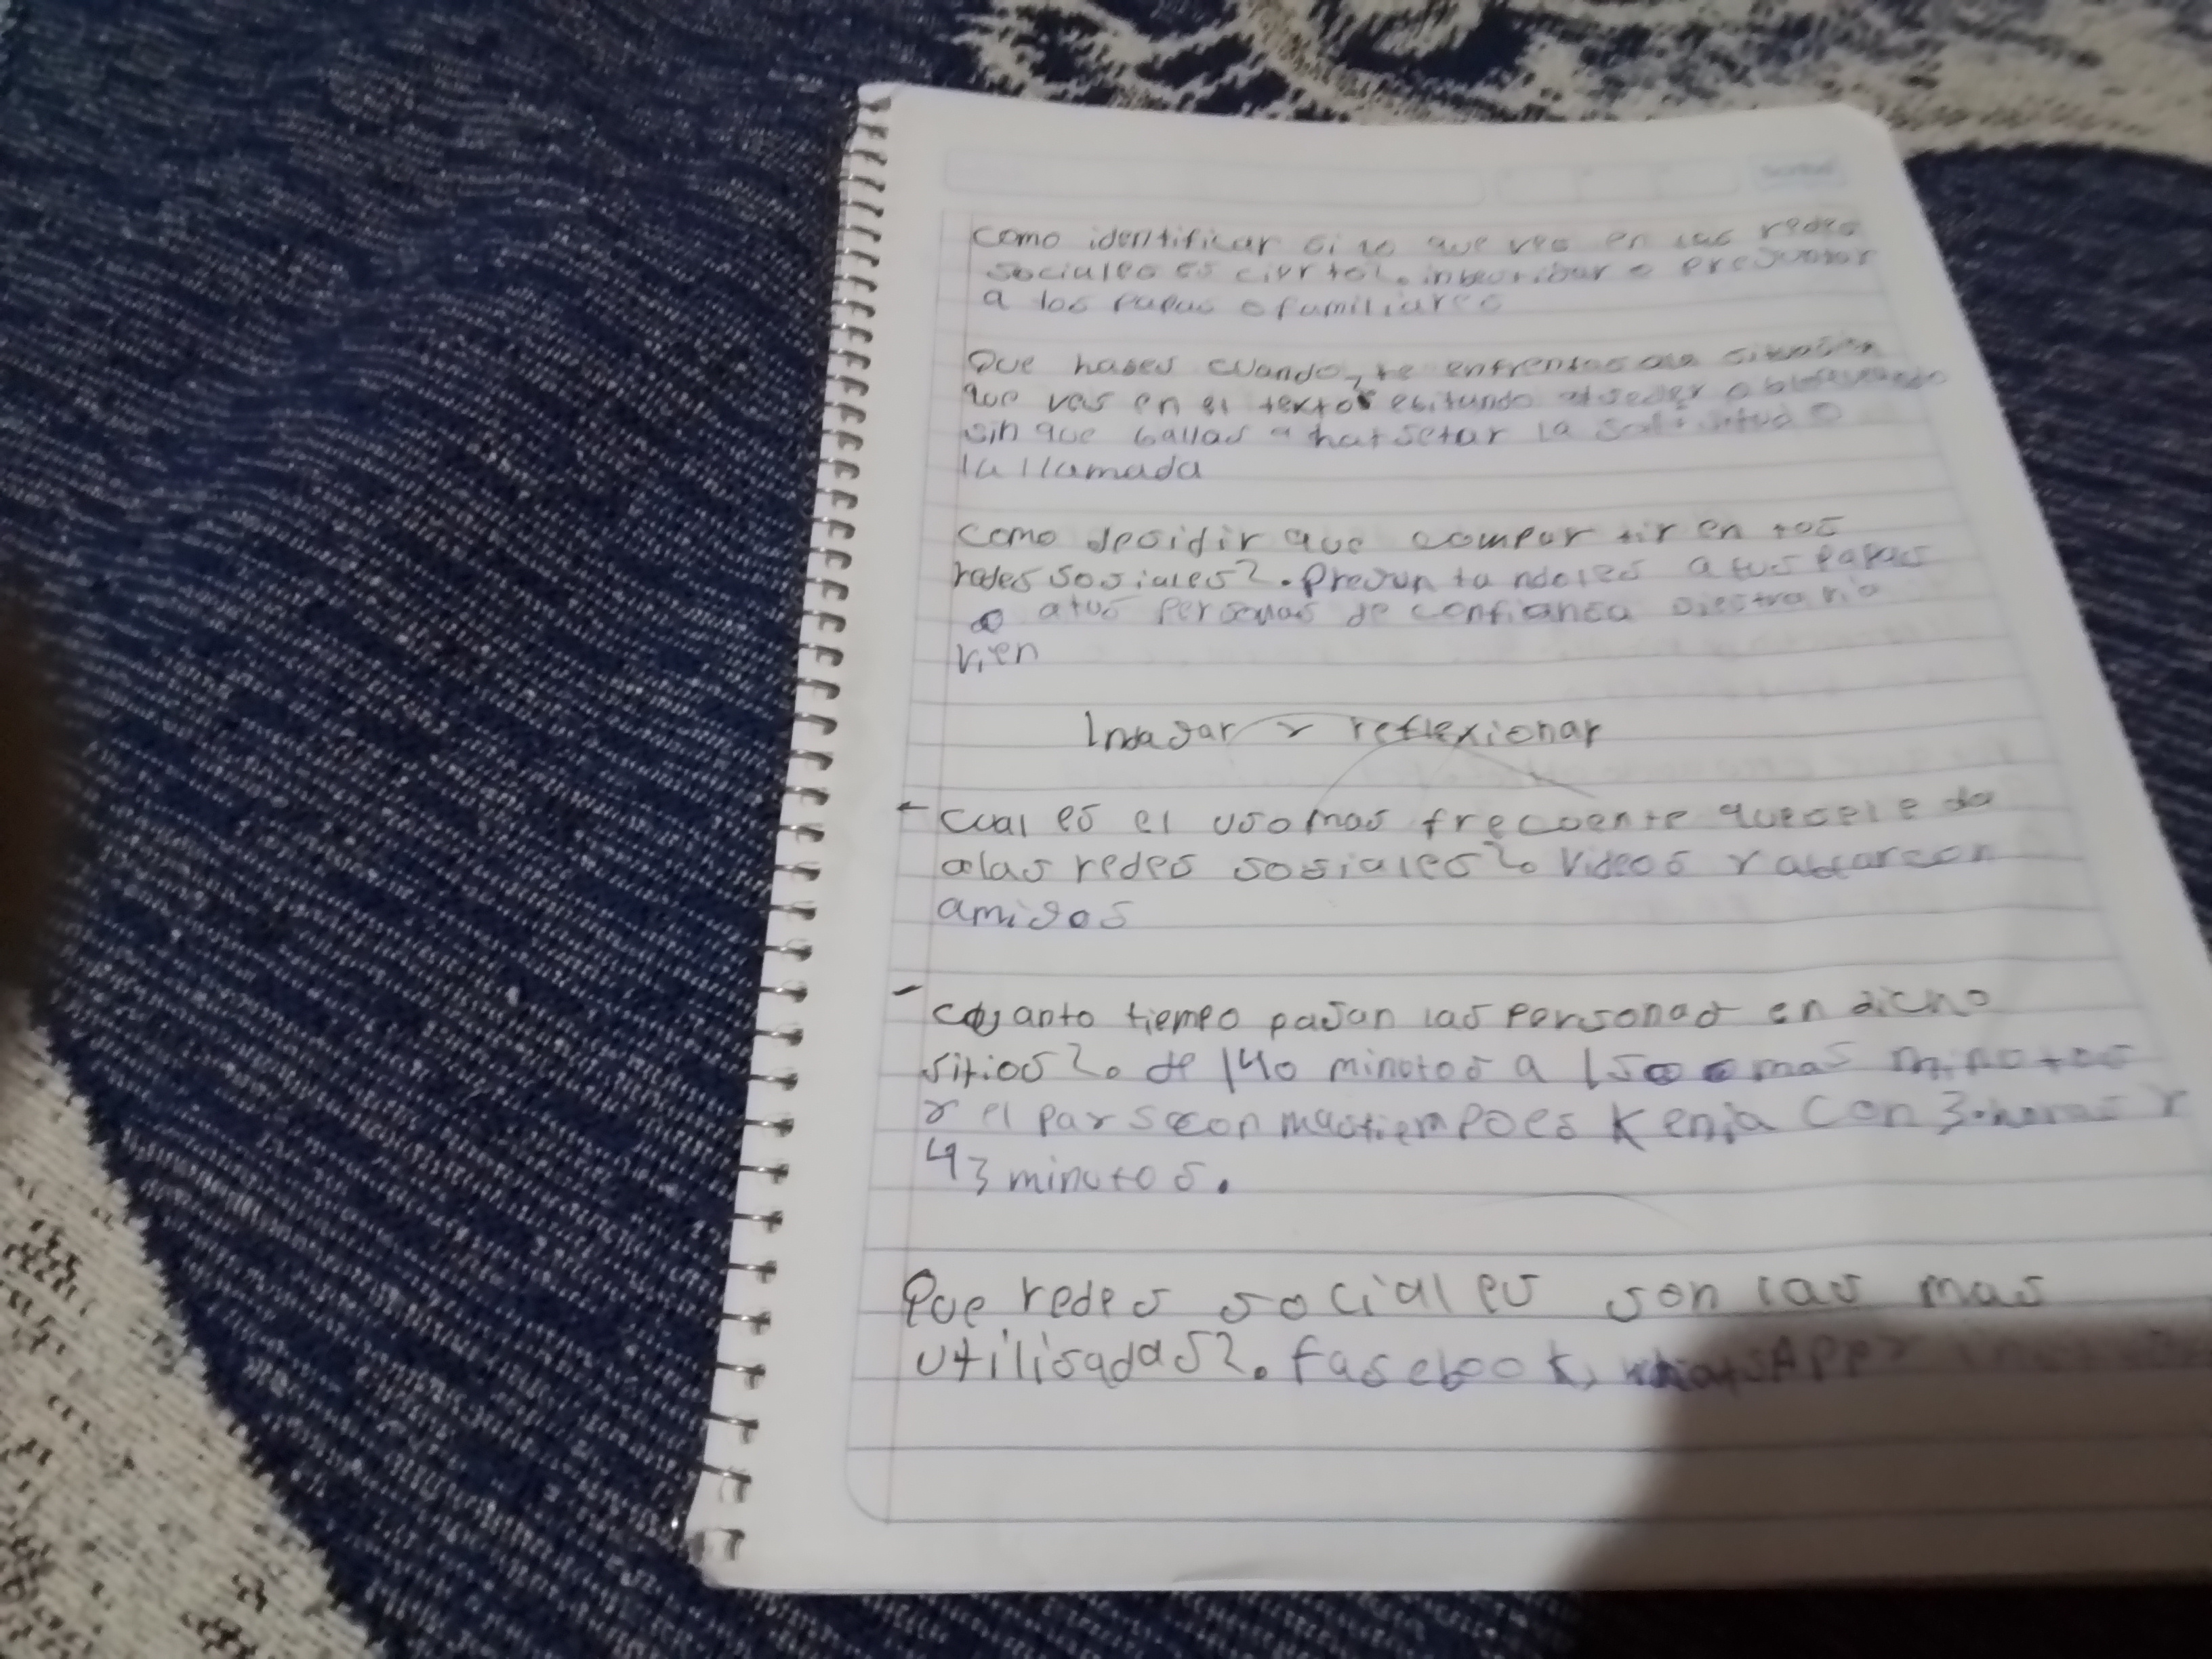 como identificar si lo que ves en las redes
sociales es cierto?. o preguntar
a los papas o familiares
Que hases cuando, te enfrentas situasion
que ves en el texto? ebitando
sin que ballas a la o
la llamada
como desidir que compartir en tus
redes sosiales?. Preguntandoles a tus papas
o a tus personas de confiansa
vien
Indagar y reflexionar
- cual es el uso mas frecuente que se le da
a las redes sosiales?. Videos y
amigos
- cuanto tiempo pasan las personas en dicho
sitios?. de 140 minutos a 150 o mas minutos
y el con mas tiempo es Kenia con 3 horas y
43 minutos.
Que redes sociales son las mas
utilisadas?. fasebook, whatsApp y